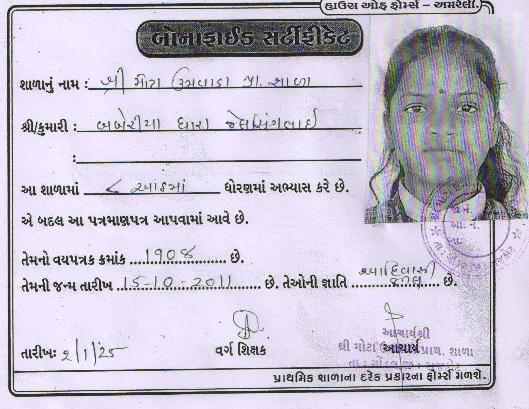 હાઉસ ઓફ ફોર્મ્સ – અમરેલી.
બોનાફાઈડ સર્ટીફીકેટ
શાળાનું નામ : શ્રી મોટા ઉમવાડા પ્રા. શાળા
શ્રી/કુમારી : બબેરીયા ધારા જેસીંગભાઈ
:
આ શાળામાં ૮ આઠમાં ધોરણમાં અભ્યાસ કરે છે.
એ બદલ આ પત્રમાણપત્ર આપવામાં આવે છે.
તેમનો વયપત્રક ક્રમાંક ૧૯૦૪ છે.
તેમની જન્મ તારીખ 15-10-2011 છે. તેઓની જ્ઞાતિ આદિવાસી ભીલ છે.
આચાર્યશ્રી
તારીખઃ ૨/૧/૨૫ વર્ગ શિક્ષક આચાર્ય
શ્રી મોટા પ્રાય. શાળા
પ્રાથમિક શાળાના દરેક પ્રકારના ફોર્મ્સ મળશે.